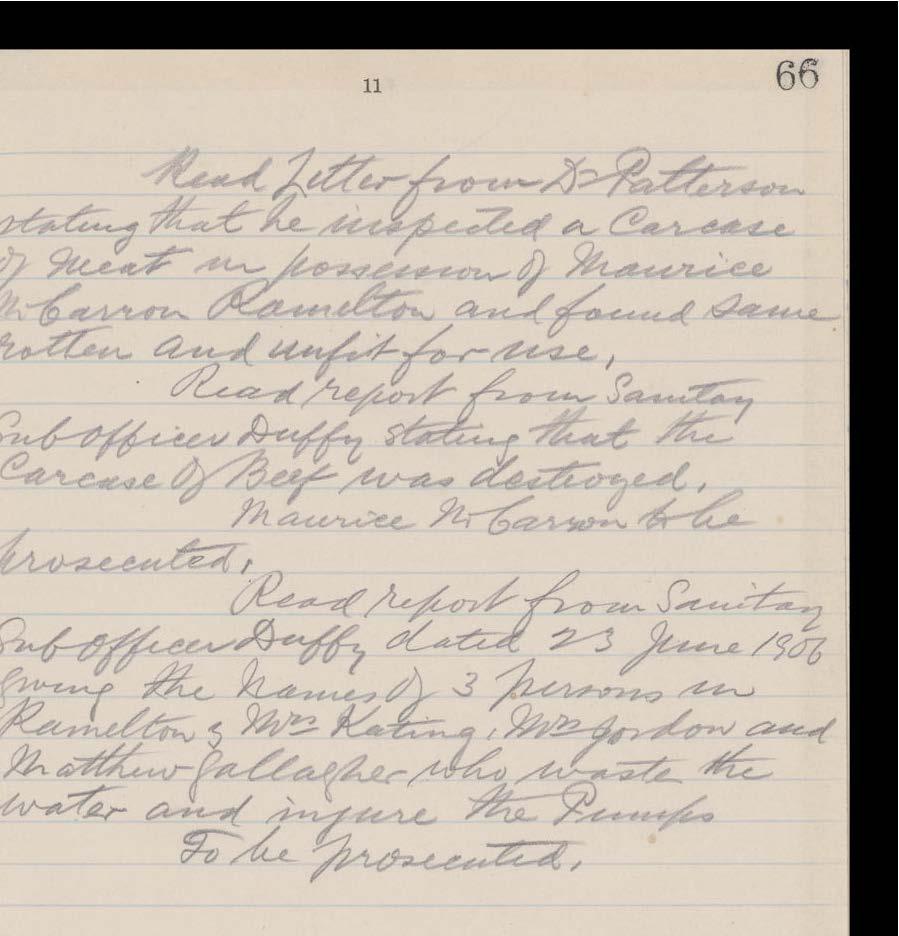 11
66
Read Letter from Dr Patterson
stating that he inspected a Carcase
of Meat in possession of Maurice
McCarron Ramelton and found same
rotten and unfit for use,
Read report from Sanitary
Sub Officer Duffy stating that the
Carcase of Beef was destroyed.
Maurice McCarron to be
prosecuted.
Read report from Sanitary
Sub Officer Duffy dated 23 June 1906
giving the Names of 3 persons in
Ramelton, Mrs Kating, Mrs Gordon and
Matthew Gallagher who waste the
water and injure the Pumps
To be prosecuted.